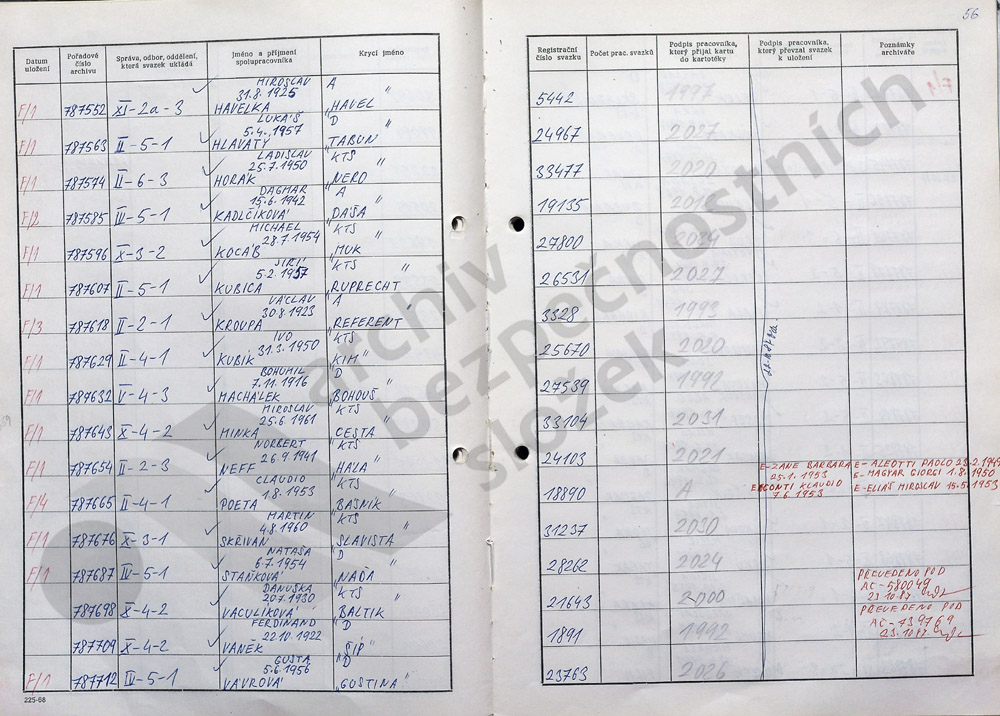 56
Datum uložení | Pořadové číslo archivu | Správa, odbor, oddělení, která svazek ukládá | Jméno a příjmení spolupracovníka | Krycí jméno
MIROSLAV A
31.8.1925
F/1 787552 XI-2a-3 HAVELKA „HAVEL"
LUKÁŠ D
5.4.1957
F/1 787563 II-5-1 HLAVATÝ „TABUN"
LADISLAV KTS
25.7.1950
F/1 787574 II-6-3 HORÁK „NERO"
DAGMAR A
15.6.1942
F/2 787585 III-5-1 KADLČÍKOVÁ „DAŠA"
MICHAEL KTS
28.7.1954
787596 X-3-2 KOCÁB „MUK"
JIŘÍ KTS
5.2.1957
F/1 787607 II-5-1 KUBICA „RUPRECHT"
VÁCLAV A
30.8.1923
F/3 787618 II-2-1 KROUPA „REFERENT"
IVO KTS
31.3.1950
F/1 787629 II-4-1 KUBÍK „KIM"
BOHUMIL D
7.11.1916
F/1 787632 V-4-3 MACHÁLEK „BOHOUŠ"
MIROSLAV KTS
25.6.1961
F/1 787643 X-4-2 MINKA „CESTA"
NORBERT KTS
26.9.1941
F/1 787654 II-2-3 NEFF „HALA"
CLAUDIO KTS
1.8.1953
F/4 787665 II-4-1 POETA „BÁSNÍK"
MARTIN KTS
4.8.1960
F/1 787676 X-3-1 SKŘIVAN „SLAVISTA"
NATAŠA D
6.7.1954
F/1 787687 IV-5-1 STAŇKOVÁ „NAĎA"
DANUŠKA KTS
20.7.1930
787698 X-4-2 VACULÍKOVÁ „BALTIK"
FERDINAND D
22.10.1922
787709 X-4-2 VANĚK „ŠÍP"
GUSTA D
5.6.1956
F/1 787712 IV-5-1 VÁVROVÁ „GUSTINA"
225-68
Registrační číslo svazku | Počet prac. svazků | Podpis pracovníka, který přijal kartu do kartotéky | Podpis pracovníka, který převzal svazek k uložení | Poznámky archiváře
5442 1997
24967 2027
33477 2020
19135
27800 2024
26531 2027
3328 1993
25670 2020
27539 1992
33104 2031
24103 2021
E-ZANE BARBARA E-ALEOTTI PAOLO
25.1.1953 E-MAGYAR GIORGI 1.8.1950
18890 A E-CONTI KLAUDIO E-ELIÁŠ MIROSLAV 15.5.1953
7.6.1953
31237 2030
28262 2024
PŘEVEDENO POD
AC-580049
21643 2000 23.10.87
PŘEVEDENO POD
AC-739769
1891 1992 23.10.87
23763 2026
archiv
bezpečnostních
složek